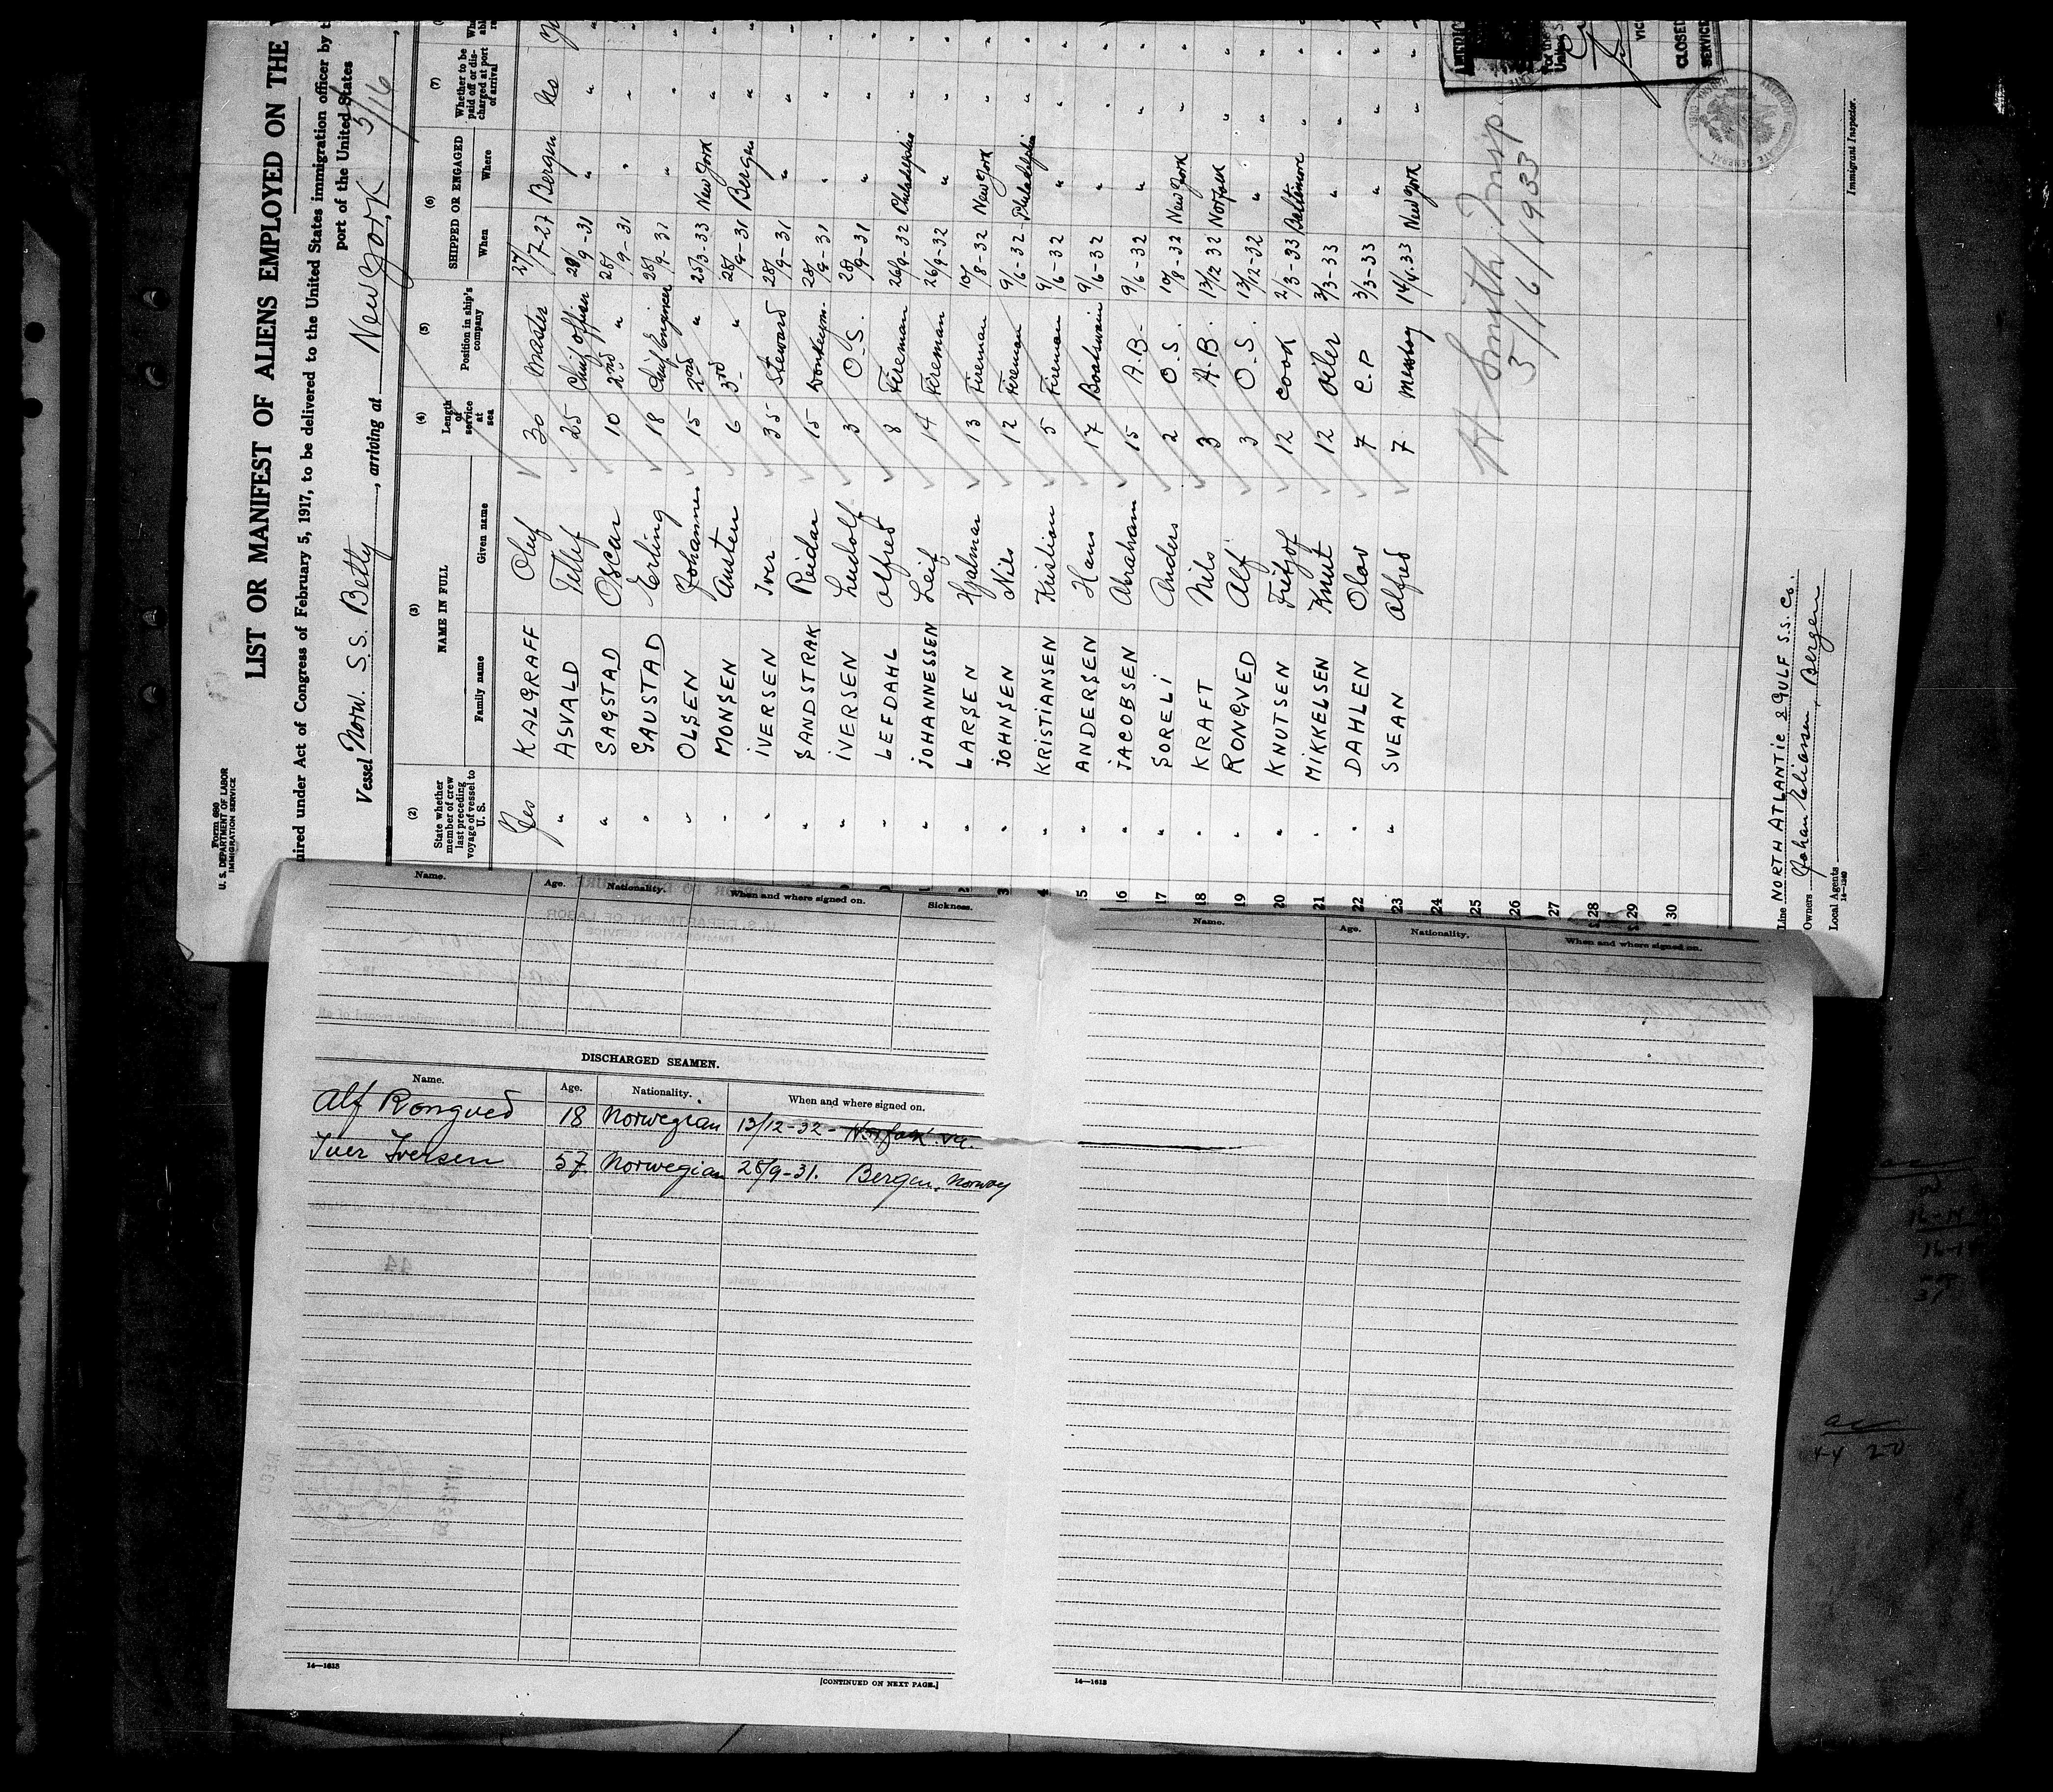 Form 680
U. S. DEPARTMENT OF LABOR
IMMIGRATION SERVICE
LIST OR MANIFEST OF ALIENS EMPLOYED ON THE
uired under Act of Congress of February 5, 1917, to be delivered to the United States immigration officer by t
port of the United States
Vessel Norw. S.S. Betty, arriving at New York 3/16
(2) (3) (4) (5) (6) (7)
State whether member of crew last preceding voyage of vessel to U. S.
NAME IN FULL
Family name Given name
Length of service at sea
Position in ship's company
SHIPPED OR ENGAGED
When Where
Whether to be paid off or discharged at port of arrival
Yes KALGRAFF Oluf 30 Master 27/7-27 Bergen No
" ASVALD Tellef 25 Chief officer 28/9-31 " "
" SAGSTAD Oscar 10 2nd " 28/9-31 " "
" GAUSTAD Erling 18 Chief Engineer 28/9-31 " "
" OLSEN Johannes 15 2nd " 25/3-33 New York "
" MONSEN Austen 6 3rd " 28/9-31 Bergen "
" IVERSEN Iver 35 Steward 28/9-31 " "
" SANDSTRAK Reidar 15 Donkeym. 28/9-31 " "
" IVERSEN Ludolf 3 O.S. 28/9-31 " "
" LEFDAHL Alfred 8 Fireman 26/9-32 Philadelphia "
" JOHANNESSEN Leif 14 Fireman 26/9-32 " "
" LARSEN Hjalmar 13 Fireman 10/8-32 New York "
" JOHNSEN Nils 12 Fireman 9/6-32 Philadelphia "
4 " KRISTIANSEN Kristian 5 Fireman 9/6-32 " "
5 " ANDERSEN Hans 17 Boatswain 9/6-32 " "
16 " JACOBSEN Abraham 15 A.B. 9/6-32 " "
17 " SORELI Anders 2 O.S. 10/8-32 New York "
18 " KRAFT Nils 3 A.B. 13/12 32 Norfolk "
19 " RONGVED Alf 3 O.S. 13/12-32 " "
20 " KNUTSEN Fritjof 12 Cook 2/3-33 Baltimore "
21 " MIKKELSEN Knut 12 Oiler 3/3-33 " "
22 " DAHLEN Olav 7 C.P 3/3-33 " "
23 " SVEAN Alfred 7 Messboy 14/4-33 New York "
24
25
26
27
28
29
30
H Smith Insp
3/16/1933
CLOSED
SERVICE
Line NORTH ATLANTIC & GULF S.S. Co.
Owners Johan Eliassen, Bergen
Local Agents
14-1240
Immigrant Inspector.
Name. Age. Nationality. When and where signed on. Sickness.
DISCHARGED SEAMEN.
Name. Age. Nationality. When and where signed on.
Alf Rongved 18 Norwegian 13/12-32- Norfolk Va.
Iver Iversen 57 Norwegian 28/9-31. Bergen, Norway
14—1613
[CONTINUED ON NEXT PAGE.]
Name. Age. Nationality. When and where signed on.
14—1613
ac
44 20